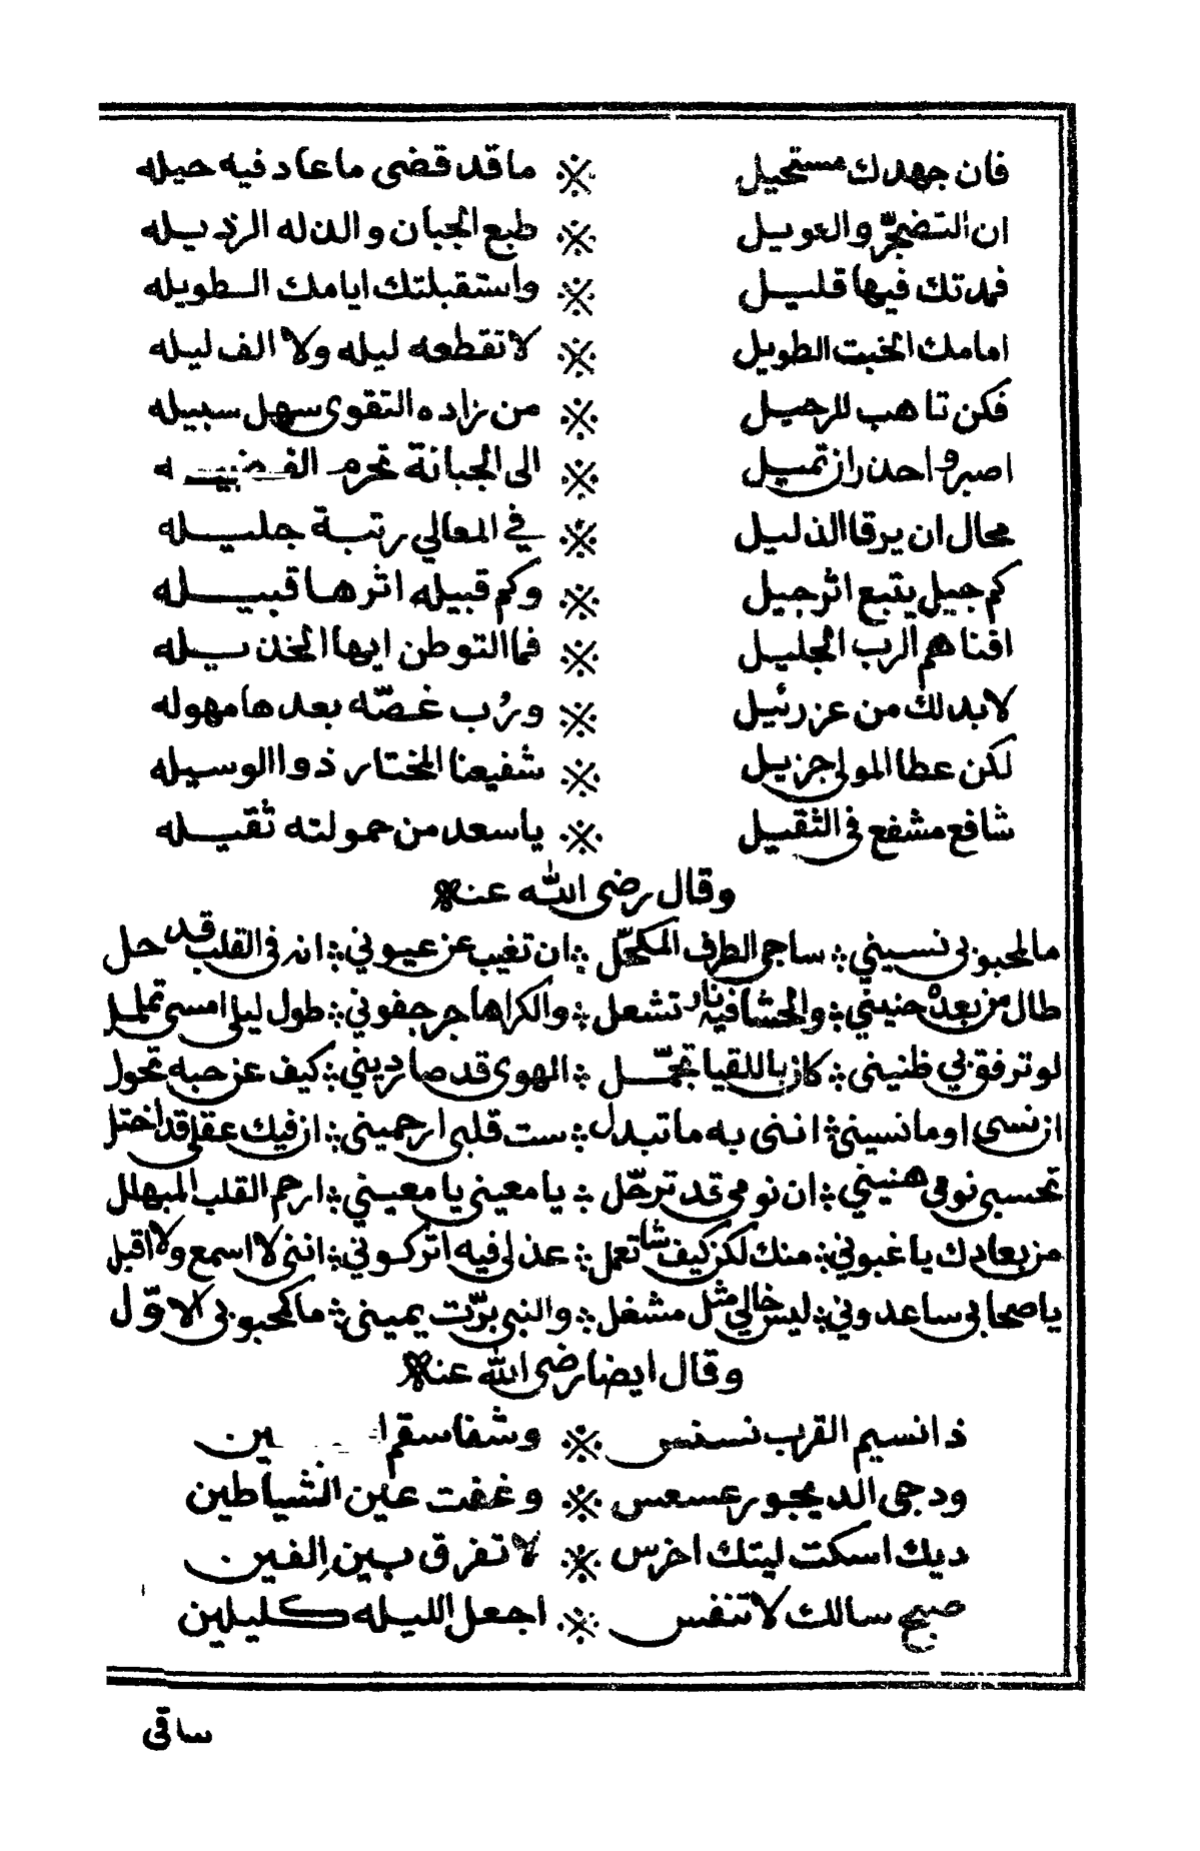 فان جهدك مستحيل ※ ما قد قضى ما عاد فيه حيله
ان التضجّر والعويل ※ طبع الجبان والذله الرذيله
فمدتك فيها قليل ※ واستقبلتك ايامك الطويله
امامك الخبت الطويل ※ لا تقطعه ليله ولا الف ليله
فكن تاهب للرحيل ※ من زاده التقوى سهل سبيله
اصبر واحذر ان تميل ※ الى الجبانة تحرم
محال ان يرقا الذليل ※ في المعالي رتبة جليله
كم جيل يتبع اثر جيل ※ وكم قبيله اثرها قبيله
افناهم الرب الجليل ※ فما التوطن ايها الخذيله
لابد لك من عزرئيل ※ ورُب غصّه بعدها مهوله
لكن عطا المولى جزيل ※ شفيعنا المختار ذوا الوسيله
شافع مشفع في الثقيل ※ يا سعد من حمولته ثقيله
وقال رضى الله عنه
ما لمحبوبي نسيني ؞ ساجى الطرف المكحّل ؞ ان تغيب عن عيوني ؞ انه في القلب قد حل
طال من بعده حنيني ؞ والحشا فيه نار تشعل ؞ والكرا هاجر جفوني ؞ طول ليلى امسى تململ
لو ترفق بي ظنيني ؞ كان باللقيا تجمّل ؞ الهوى قد صار ديني ؞ كيف عن حبه تحول
ان نسى او ما نسيني ؞ اننى به ما تبدل ؞ ست قلبى ارحميني ؞ ان فيك عقلى قد اختل
تحسبى نومى هنيني ؞ ان نومى قد ترحّل ؞ يا معينى يا معيني ؞ ارحم القلب المبهلل
من بعادك يا غبوني ؞ منك لكن كيف شا تعمل ؞ عذلى فيه اتركوني ؞ اننى لا اسمع ولا اقبل
يا صحابى ساعدوني ؞ ليس خالي مثل مشغل ؞ والنبى برّت يمينى ؞ ما لمحبوبى الاوّل
وقال ايضا رضى الله عنه
ذا نسيم القرب نسنس ※ وشفا سقم
ودجى الديجور عسعس ※ وغفت عين الشياطين
ديك اسكت ليتك اخرس ※ لا تفرق بين الفين
صبح سالك لا تنفس ※ اجعل الليله كليلين
ساقى